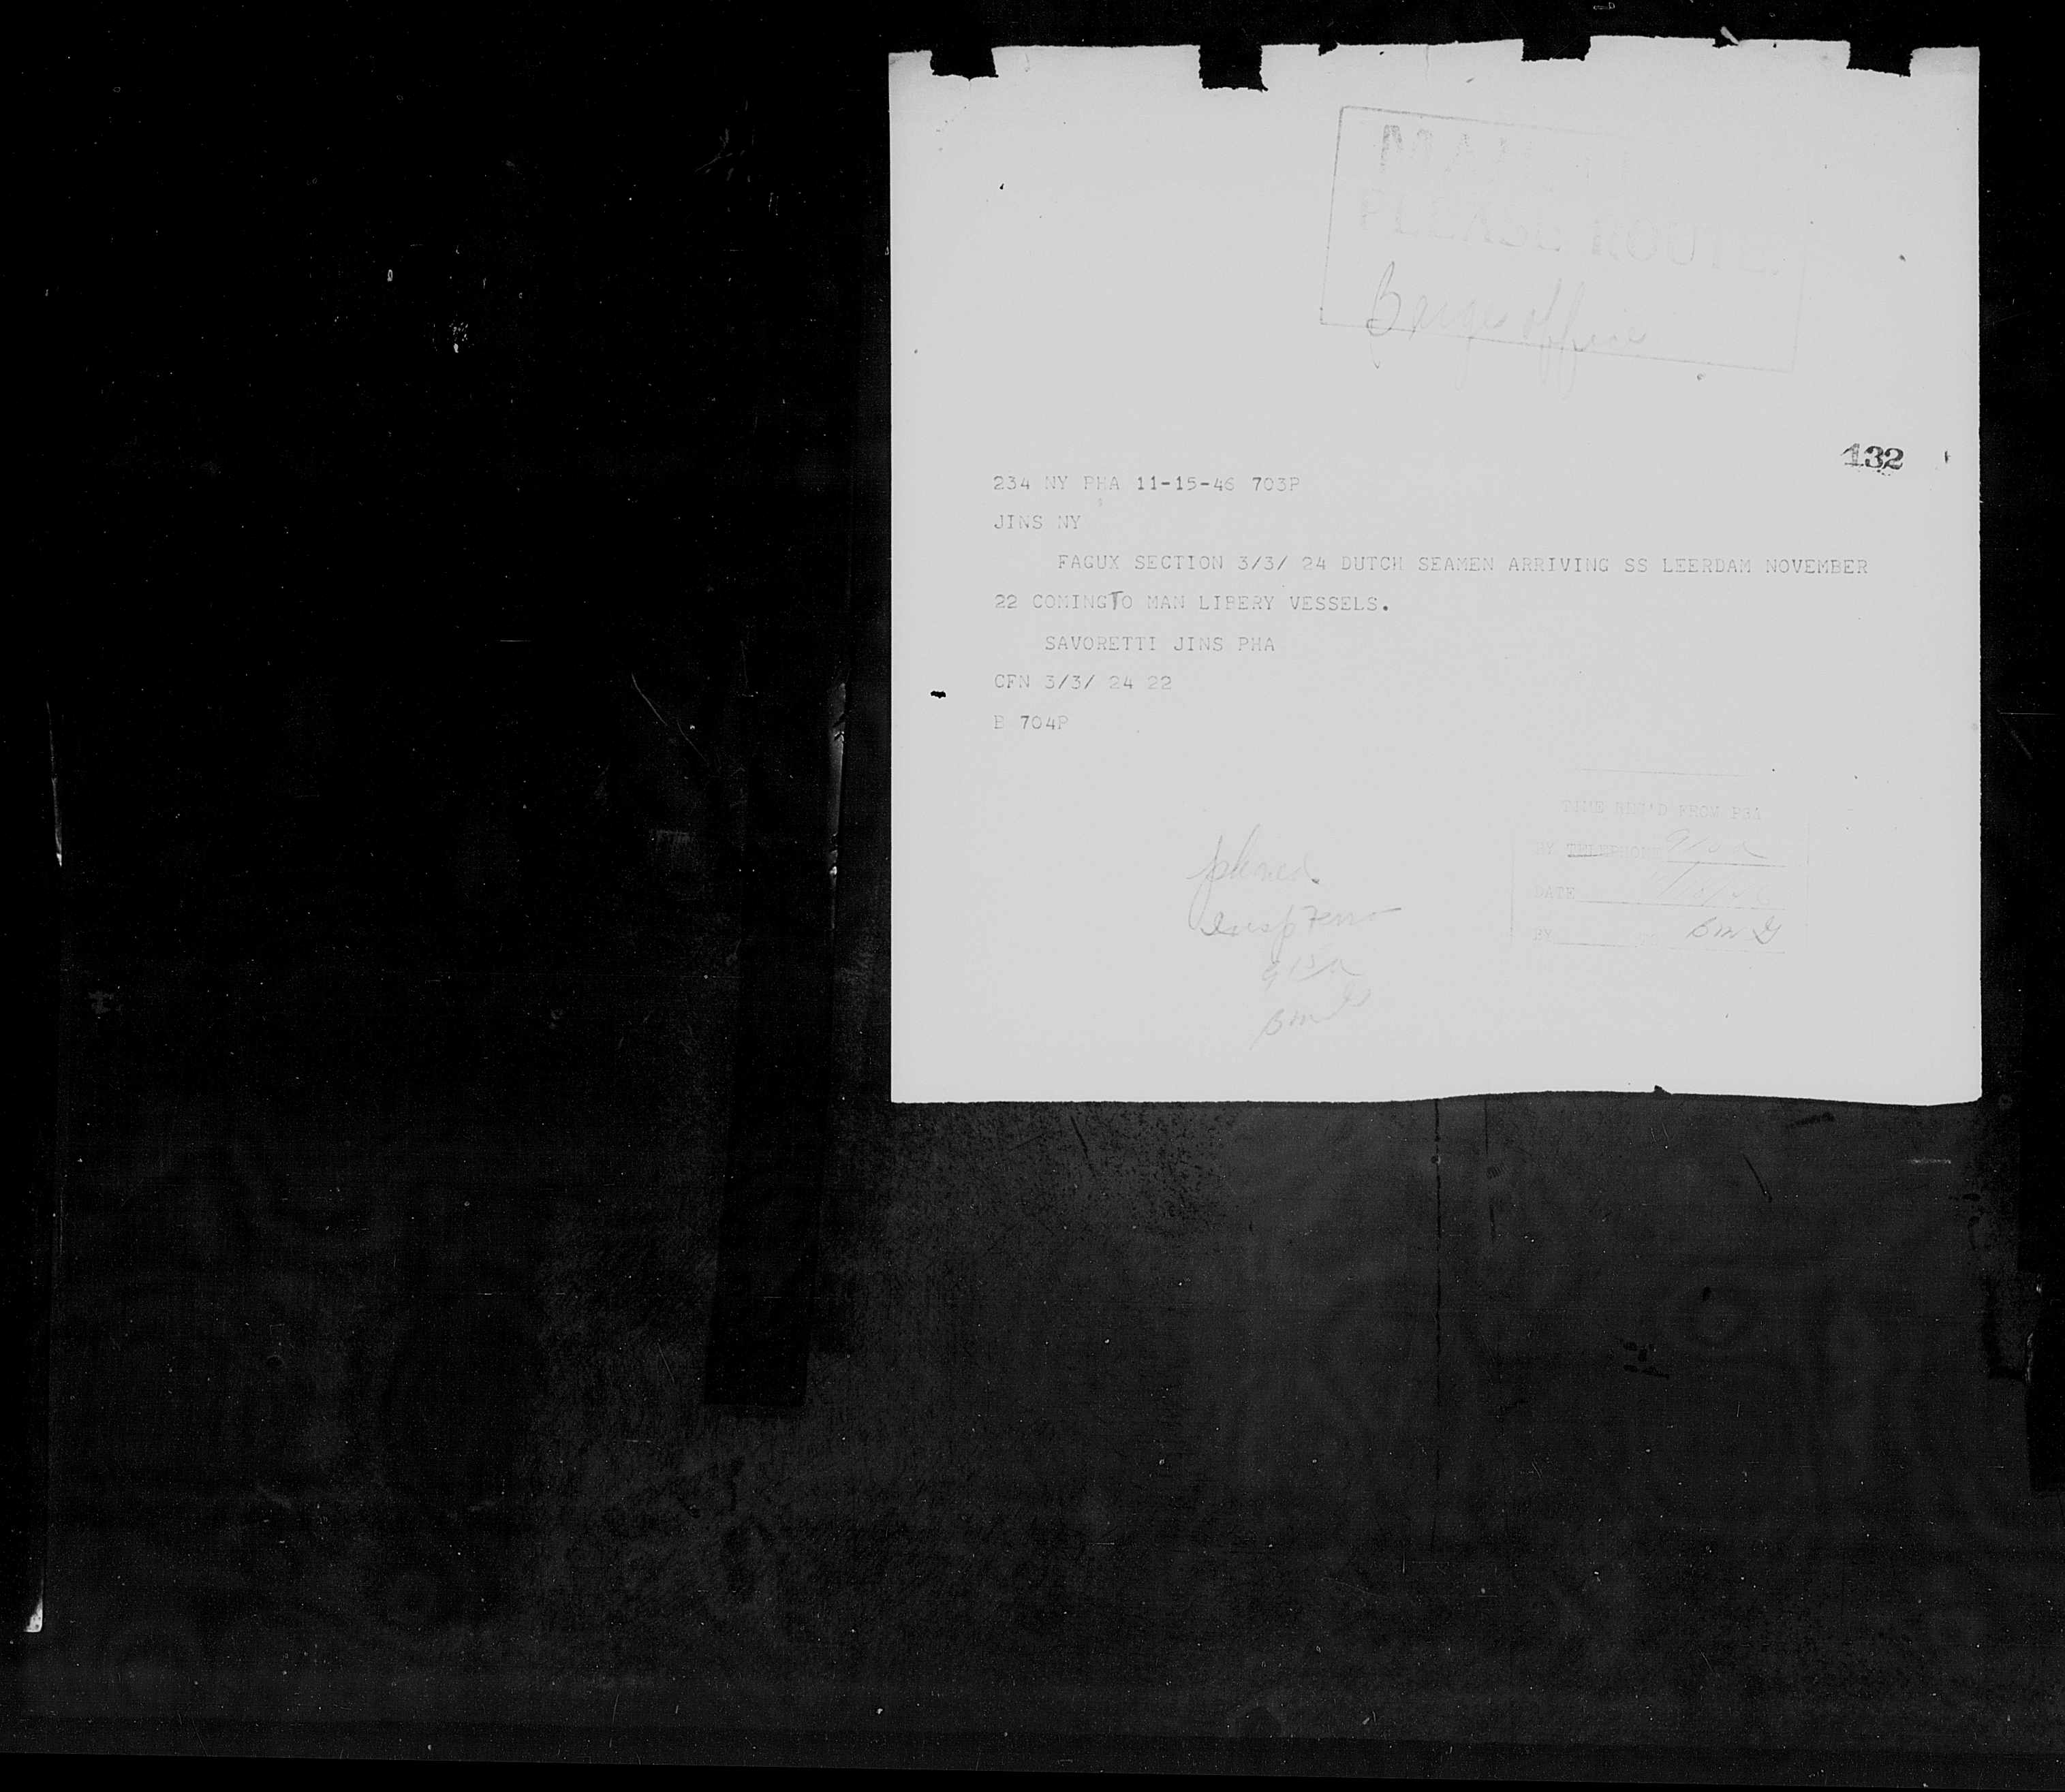 PLEASE ROUTE.
Barge office
132
234 NY PHA 11-15-46 703P
JINS NY
FAGUX SECTION 3/3/ 24 DUTCH SEAMEN ARRIVING SS LEERDAM NOVEMBER
22 COMINGTO MAN LIBERY VESSELS.
SAVORETTI JINS PHA
CFN 3/3/ 24 22
B 704P
TIME REC'D FROM
BY TELEPHONE
DATE
BY BmG
phoned
Insp
915a
BmG